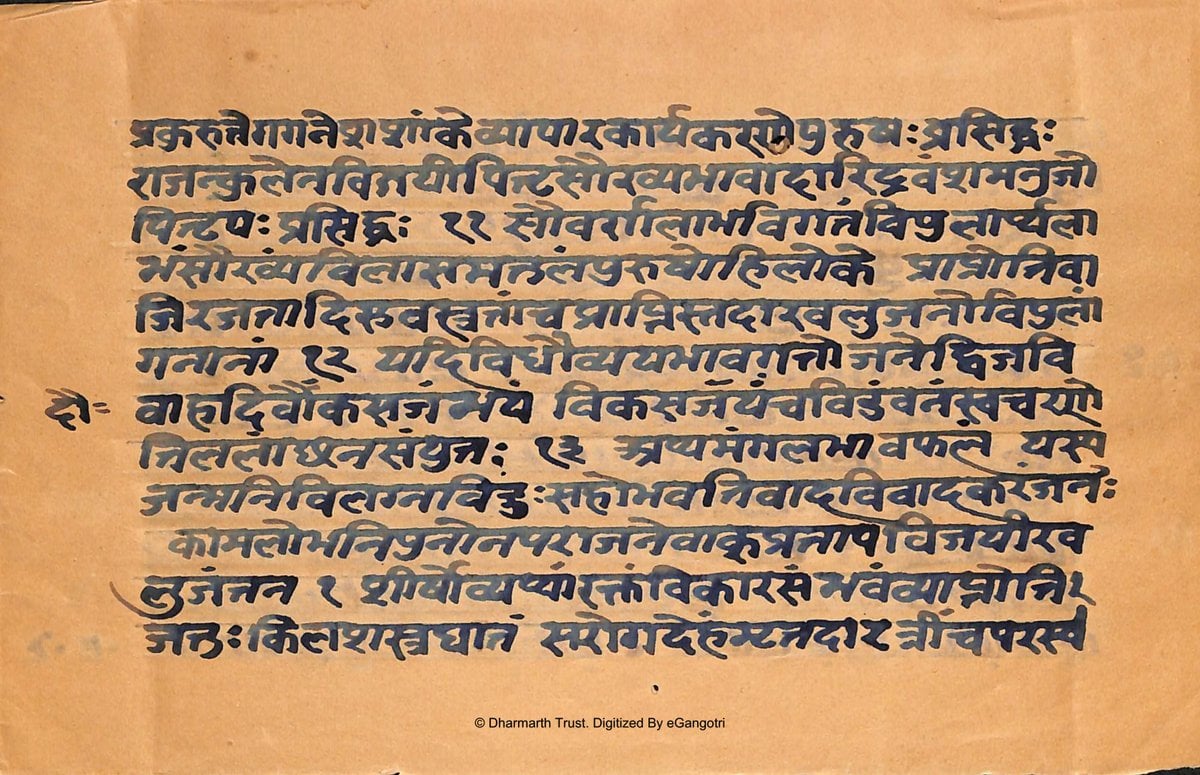 प्रकरुतेगगनेशशांकेव्यापारकार्यकरणेपुरुषः प्रसिद्धः
राजन्कुलेनविजयीपितृसौख्यभावादारिद्रवंशमनुजो
पितृपः प्रसिद्धः ११ सौवर्णलाभविगतंविपुलार्थ्यला
भंसौख्यंविलासमतुलंपुरुषोहिलोके प्राप्नोतिवा
जिरजतादिसुवस्त्रतांचप्राप्तिस्तदाखलुजनोविपुलां
गनानां १२ यदिविधौव्ययभावगतोजनेद्विजवि
वाहदिवौकसजंभयं विकसजंयंचविडंवनंस्वचरणे
तिललांछनसंयुतः १३ अथमंगलभावफलं यस्य
जन्मनिविलग्नविदुःसहोभवतिवादविवादकरंजनः
कामलोभनिपुनोनपराजनेवाकृप्रतापविजयीखव
लुजंतन १ शीर्षोव्यथांरक्तविकारसंभवंव्याप्नोति
जतुःकिलशस्त्रघातं सरोगदेहंष्टतदारत्रींचपरस्व
दौः
© Dharmarth Trust. Digitized By eGangotri